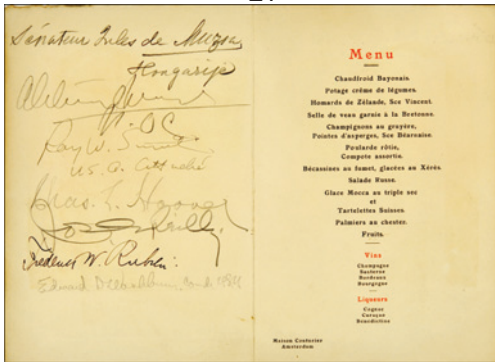 Sénateur Jules de Muzsa
Hongarije
Ray W.
U.S.A. Attaché
Chas. L. Hoover
Frederick W. Rubien.
Menu
Chaudfroid Bayonais.
Potage crème de légumes.
Homards de Zélande, Sce Vincent.
Selle de veau garnie à la Bretonne.
Champignons au gruyère,
Pointes d'asperges, Sce Béarnaise.
Poularde rôtie,
Compote assortie.
Bécassines au fumet, glacées au Xérès.
Salade Russe.
Glace Mocca au triple sec
et
Tartelettes Suisses.
Palmiers au chester.
Fruits.
Vins
Champagne
Sauterne
Bordeaux
Bourgogne
Liqueurs
Cognac
Curaçao
Bénédictine
Maison Couturier
Amsterdam